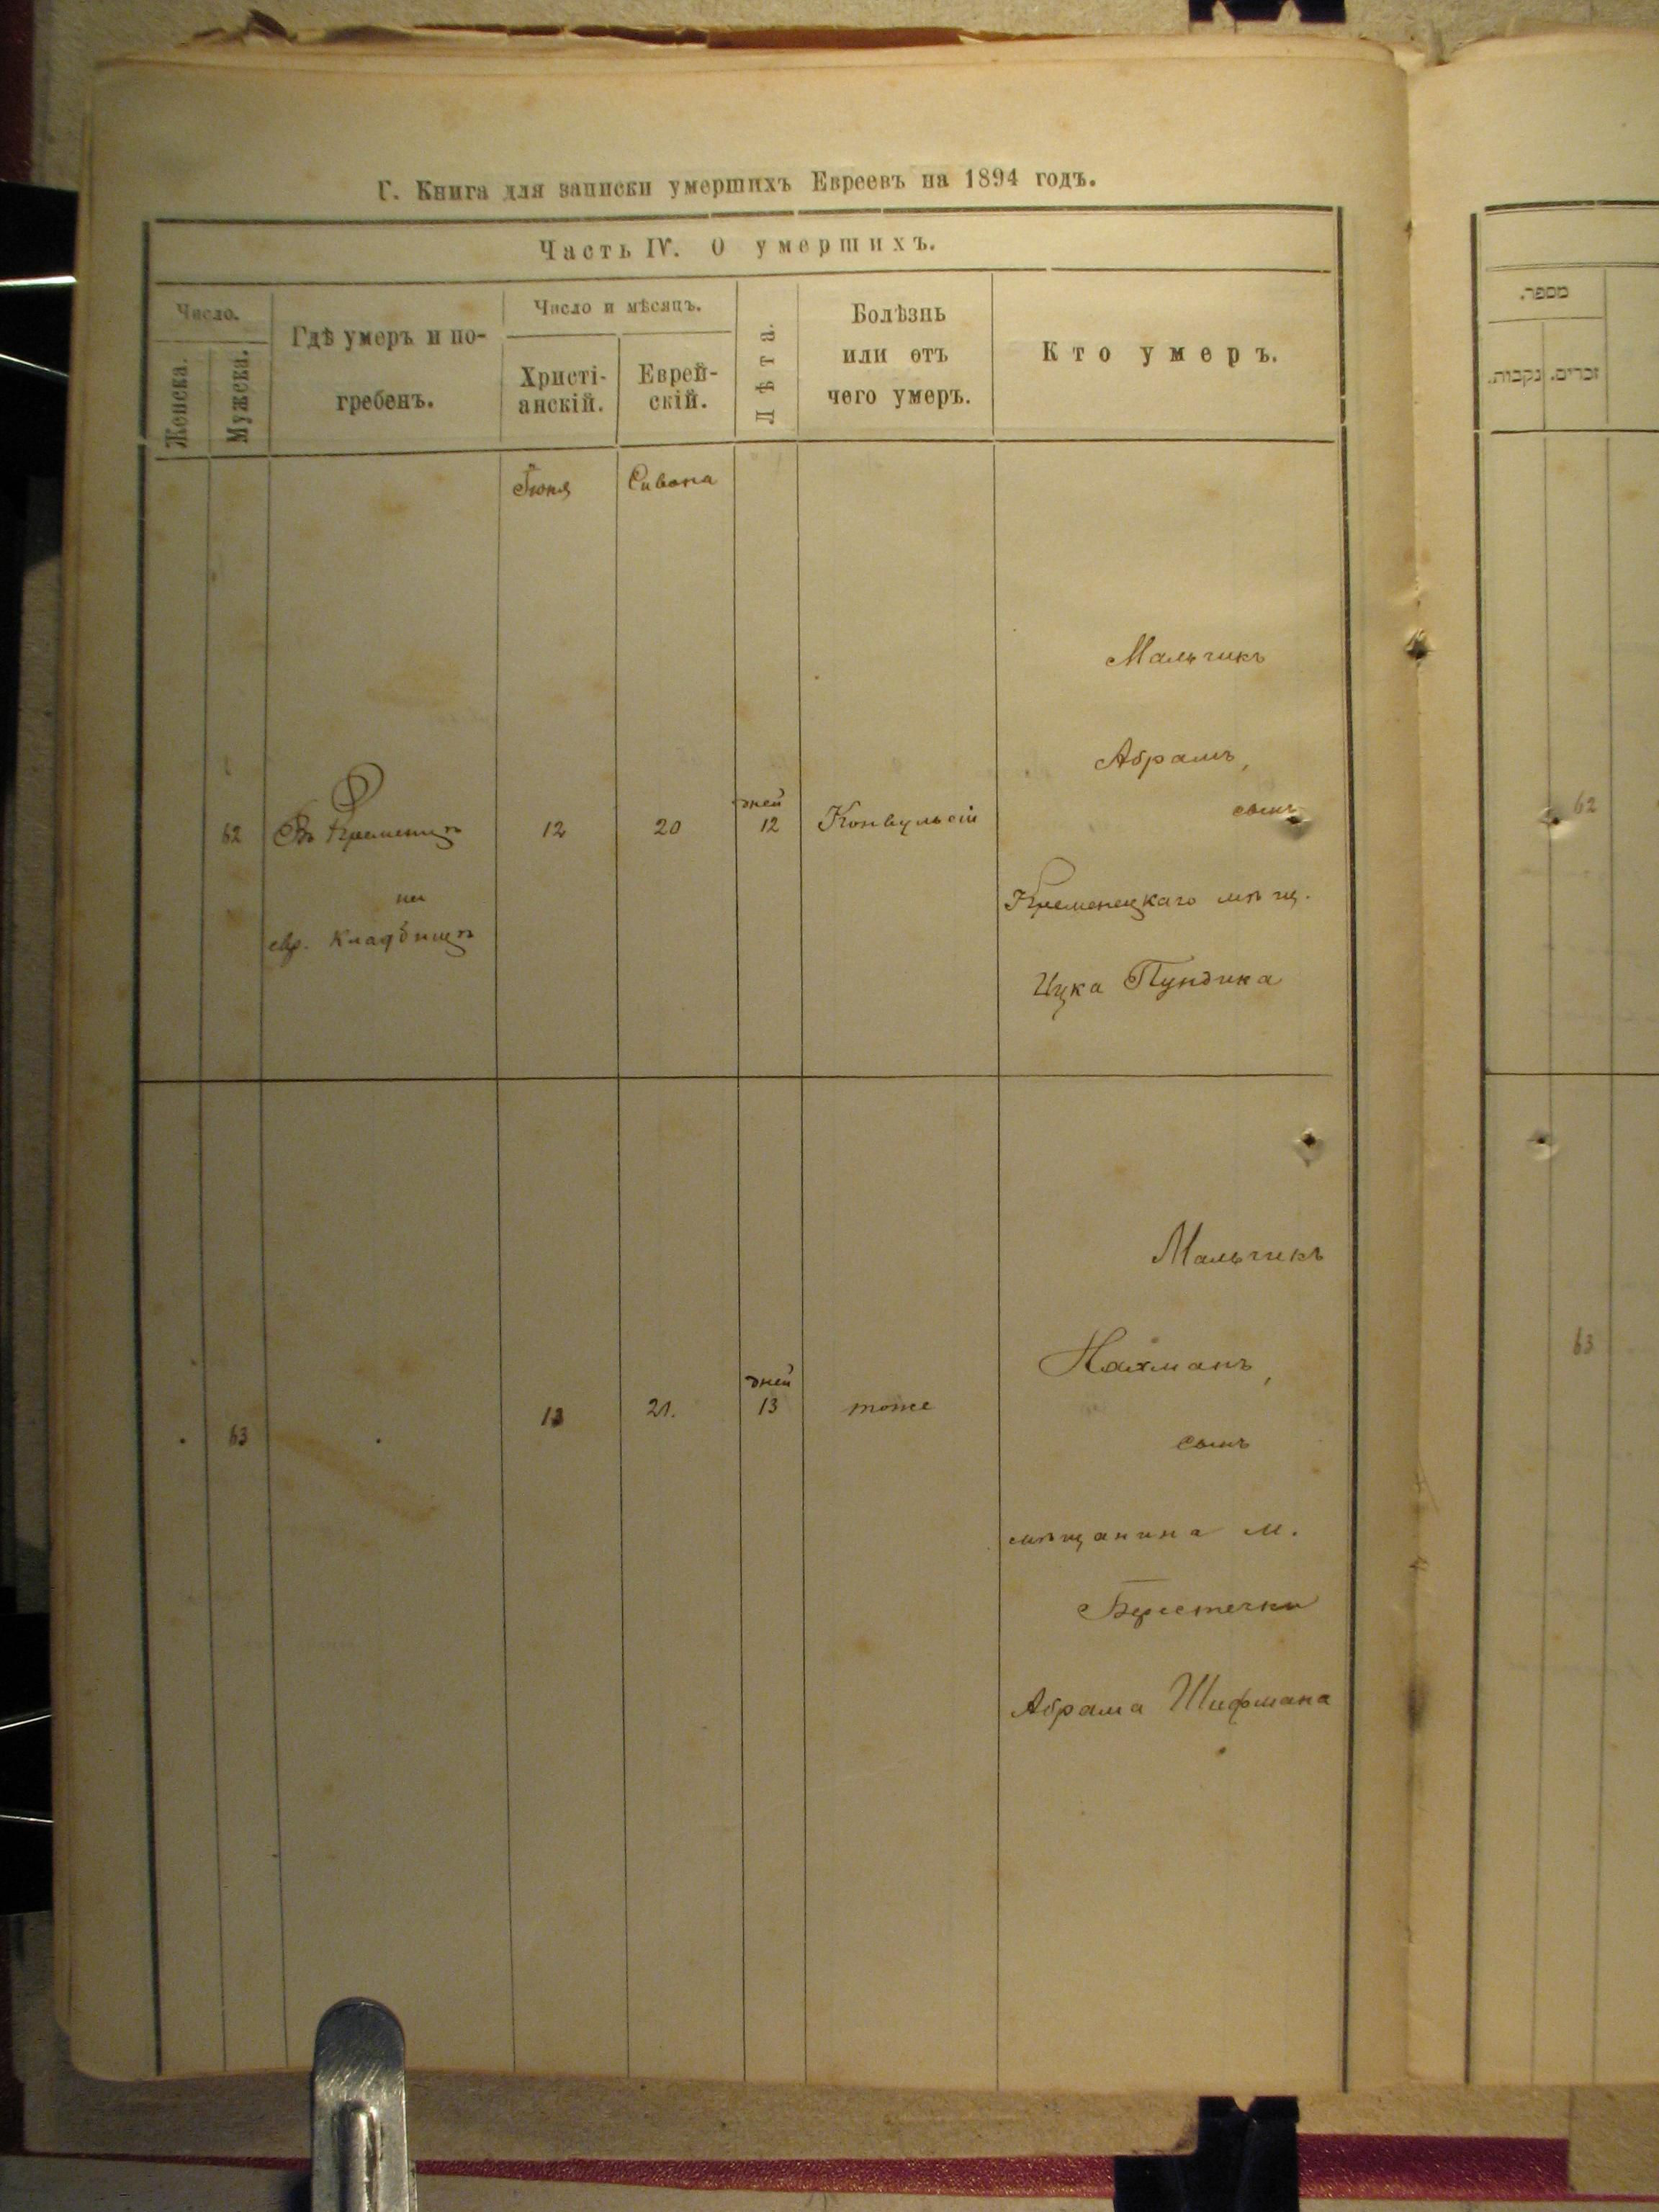 Г. Книга для записки умершихъ Евреевъ на 1894 годъ.
Часть IV. О умершихъ.
Число.
Женска.
Мужска.
Гдѣ умеръ и по-
гребенъ.
Число и мѣсяцъ.
Христі-
анскій.
Еврей-
скій.
Лѣта.
Болѣзнь
или отъ
чего умеръ.
Кто умеръ.
Іюня
Сивана
Мальчикъ
Абрамъ,
сынъ
62
Въ Кременцѣ
12
20
дней
12
Конвульсій
на
евр. кладбищѣ
Кременецкаго мѣщ.
Ицка Пундика
Мальчикъ
Нахманъ,
63
13
21.
дней
13
тоже
сынъ
мѣщанина м.
Берестечки
Абрама Шифмана
מספר.
נקבות.
זכרים.
62
63